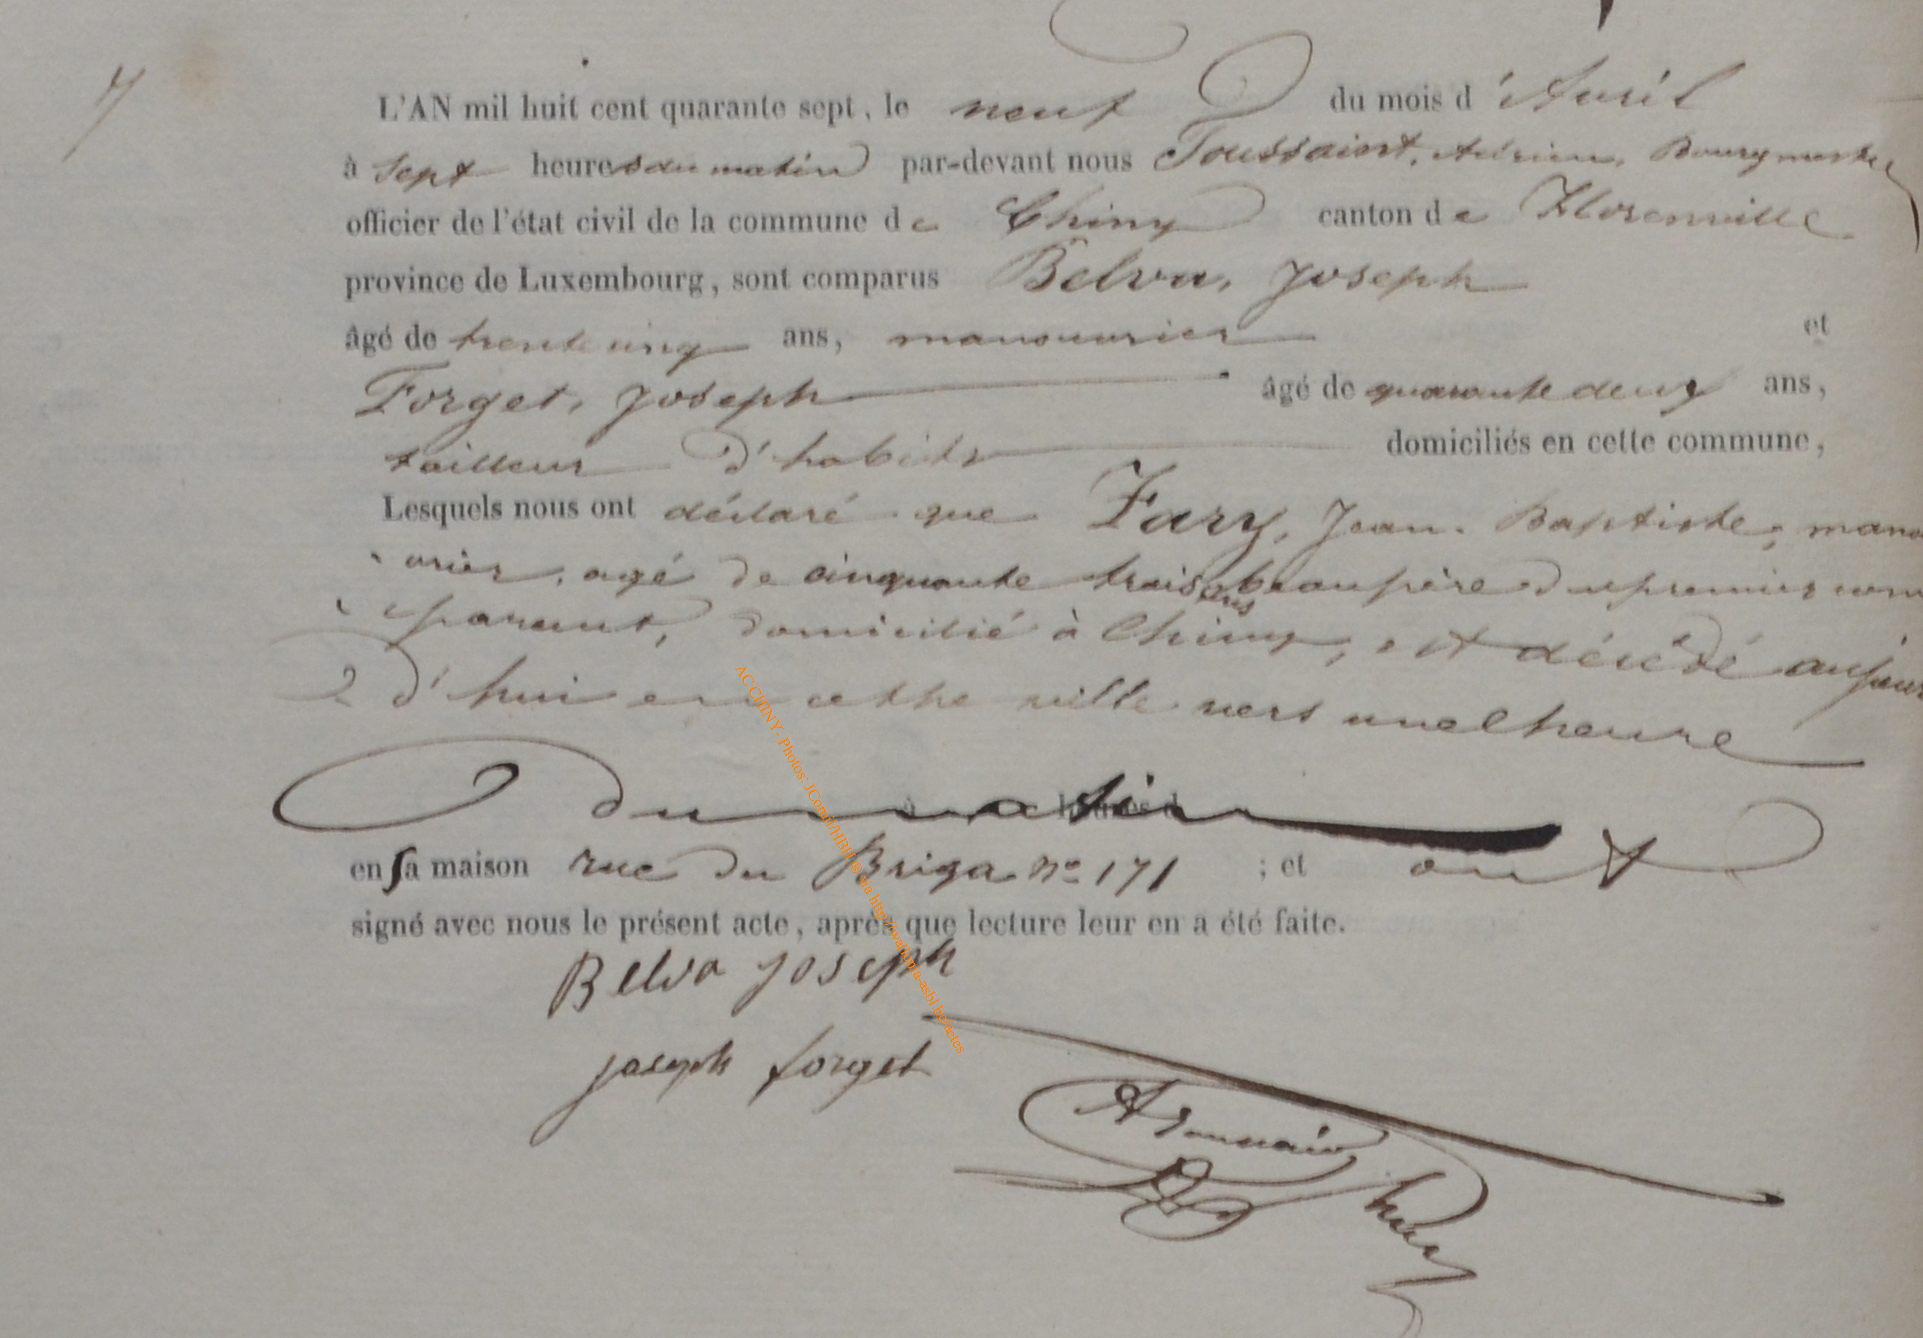 7
L'AN mil huit cent quarante sept, le neuf du mois d'Avril
à sept heures du matin par-devant nous Toussaint, Adrien, Bourgmestre
officier de l'état civil de la commune de Chiny canton de Florenville
province de Luxembourg, sont comparus Belva, Joseph
âgé de trente cinq ans, manouvrier et
Forget, Joseph âgé de quarante deux ans,
tailleur d'habits domiciliés en cette commune,
Lesquels nous ont déclaré que Fary, Jean-Baptiste, manou
vrier, agé de cinquante trois ans beaupère du premier com
parant, domicilié à Chiny, est décédé aujour
d'hui en cette ville vers une heure
du matin
en sa maison rue du Briga n° 171 ; et ont
signé avec nous le présent acte, après que lecture leur en a été faite.
Belva joseph
joseph forget
ACCHINY, Photos